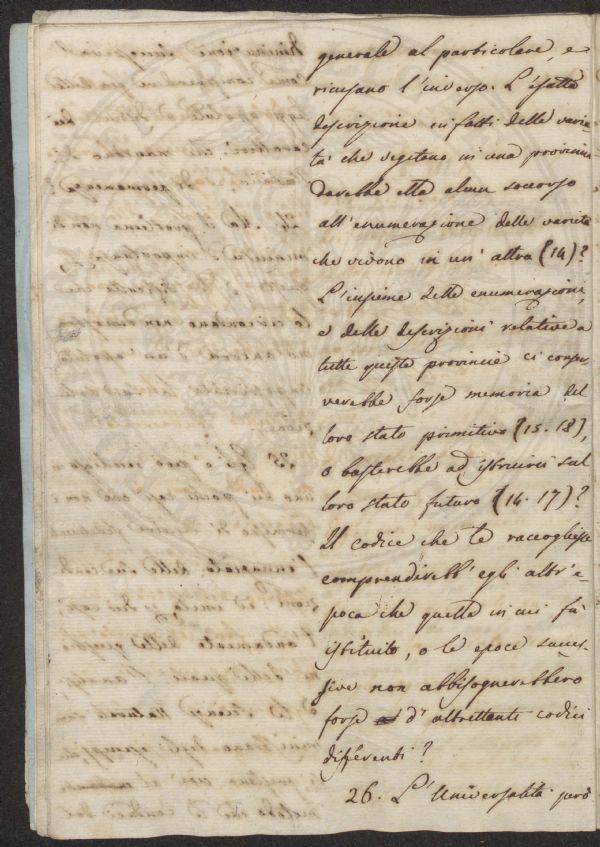 generale al particolare, e
ricusano l'inverso. L'esatta
descrizione infatti delle varie-
tà che vegetano in una provincia
darebbe ella alcun soccorso
all'enumerazione delle varietà
che vivono in un' altra (14)?
L'insieme delle enumerazioni,
e delle descrizioni relative a
tutte queste provincie ci conser-
verebbe forse memoria del
loro stato primitivo (15. 18),
o basterebbe ad istruirci sul
loro stato futuro (14. 17)?
Il codice che le raccogliesse
comprendirebb' egli altr' e-
poca che quella in cui fù
istituito, o le epoce succes-
sive non abbisognerebbero
forse d' altrettanti codici
differenti?
26. L'Universalità però